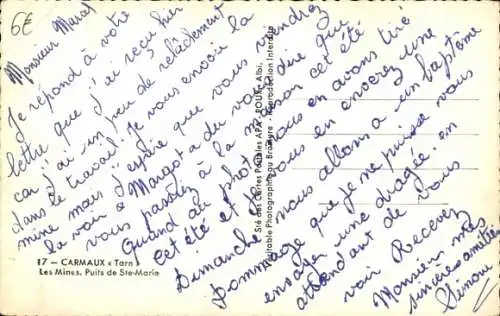 6€
Monsieur Marcel
Je répond à votre
lettre que j'ai reçu hier
car j'ai un peu de relâchement
dans le travail. Je vous envoie la
mine mais j'espère que vous viendrez
la voir. Margot a du vous dire que
vous passiez à la maison cet été
Quand au photos nous en avons tiré
cet été et vous en enverrez une
Dimanche nous allons a un baptême
Dommage que je ne puisse vous
envoyer une dragée en
attendant de vous
voir Recevez
Monsieur mes
sincères amitiés
Simone
17 - CARMAUX « Tarn »
Les Mines. Puits de Ste-Marie
Sté des Cartes Postales APA - POUX - Albi.
Véritable Photographie au Bromure - Reproduction Interdite